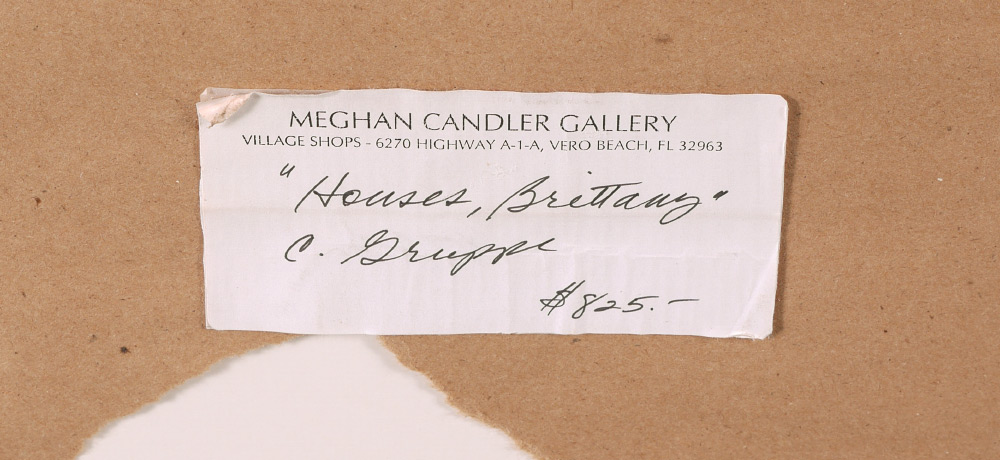 MEGHAN CANDLER GALLERY
VILLAGE SHOPS - 6270 HIGHWAY A-1-A, VERO BEACH, FL 32963
"Houses, Brittany"
C. Gruppe
$825.-